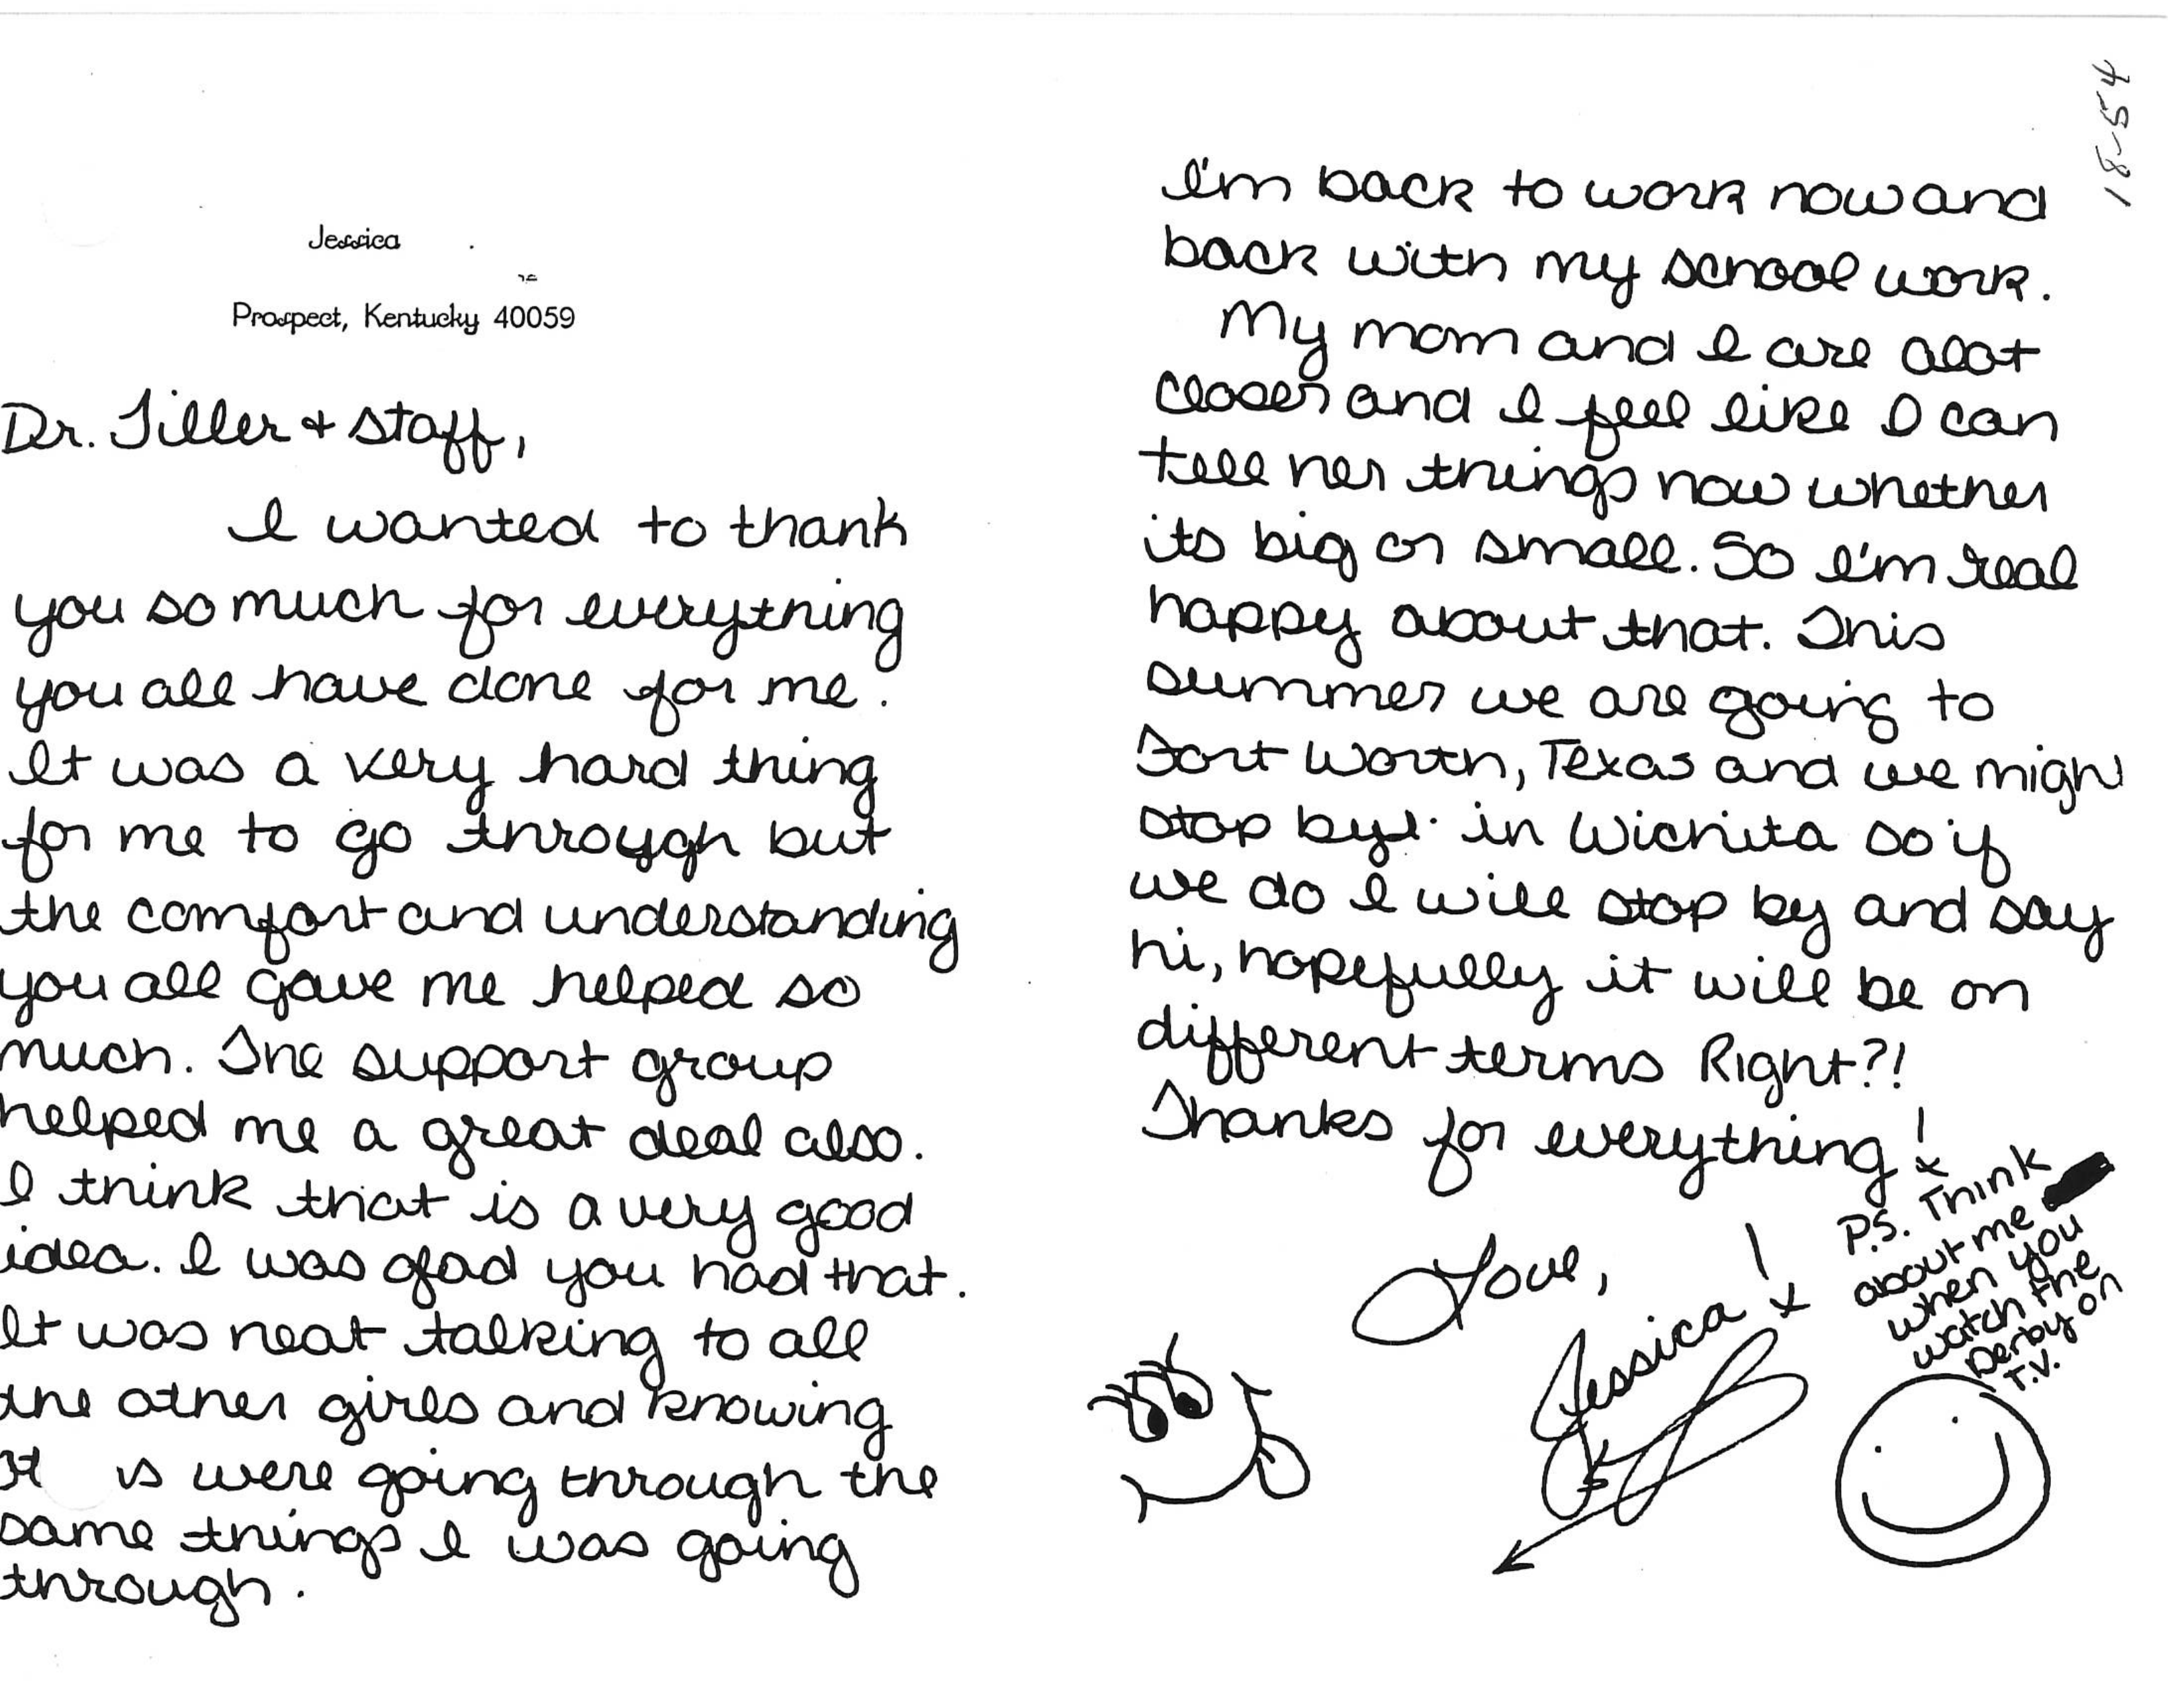 Jessica
Prospect, Kentucky 40059
Dr. Tiller + staff,
I wanted to thank
you so much for everything
you all have done for me.
It was a very hard thing
for me to go through but
the comfort and understanding
you all gave me helped so
much. The support group
helped me a great deal also.
I think that is a very good
idea. I was glad you had that.
It was neat talking to all
the other girls and knowing
is were going through the
same things I was going
through.
18-54
I'm back to work now and
back with my school work.
My mom and I are alot
closer and I feel like I can
tell her things now whether
its big or small. So I'm real
happy about that. This
summer we are going to
Fort Worth, Texas and we migh
stop by in Wichita so if
we do I will stop by and say
hi, hopefully it will be on
different terms Right?!
Thanks for everything!
Love,
Jessica!
P.S. Think
about me
when you
watch the
Derby on
T.V.